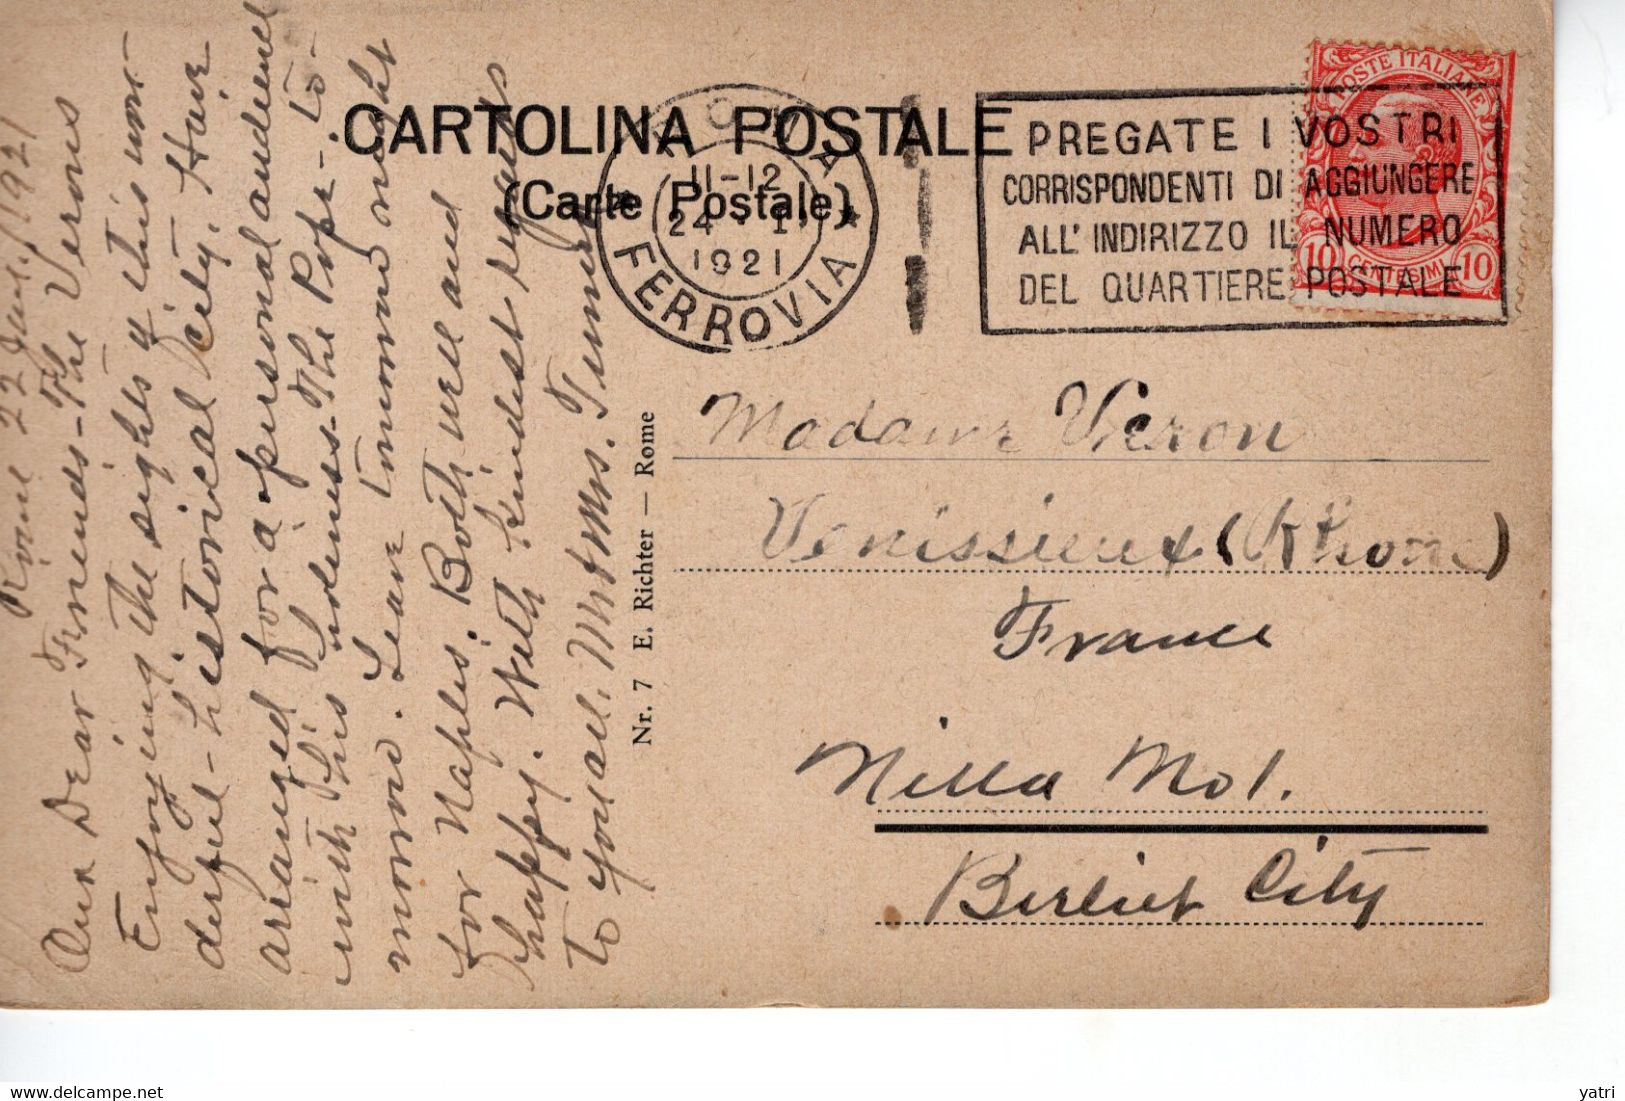 CARTOLINA POSTALE
(Carte Postale)
ROMA
11-12
24 · 1
1921
FERROVIA
PREGATE I VOSTRI
CORRISPONDENTI DI AGGIUNGERE
ALL' INDIRIZZO IL NUMERO
DEL QUARTIERE POSTALE
POSTE ITALIANE
10 CENTESIMI 10
Rome 22 Jan./1921
Our Dear Friends - The Verons
Enjoying the sights of this won-
derful - historical City. Have
arranged for a personal audience
with his Holiness - The Pope - to-
morrow. Leave tomorrow night
for Naples. Both well and
happy. With kindest regards
to you all. Mr & Mrs. Turner
Nr. 7 E. Richter — Rome
Madame Veron
Venissieux (Rhone)
France
Villa No 1.
Berliet City
delcampe.net
yatri